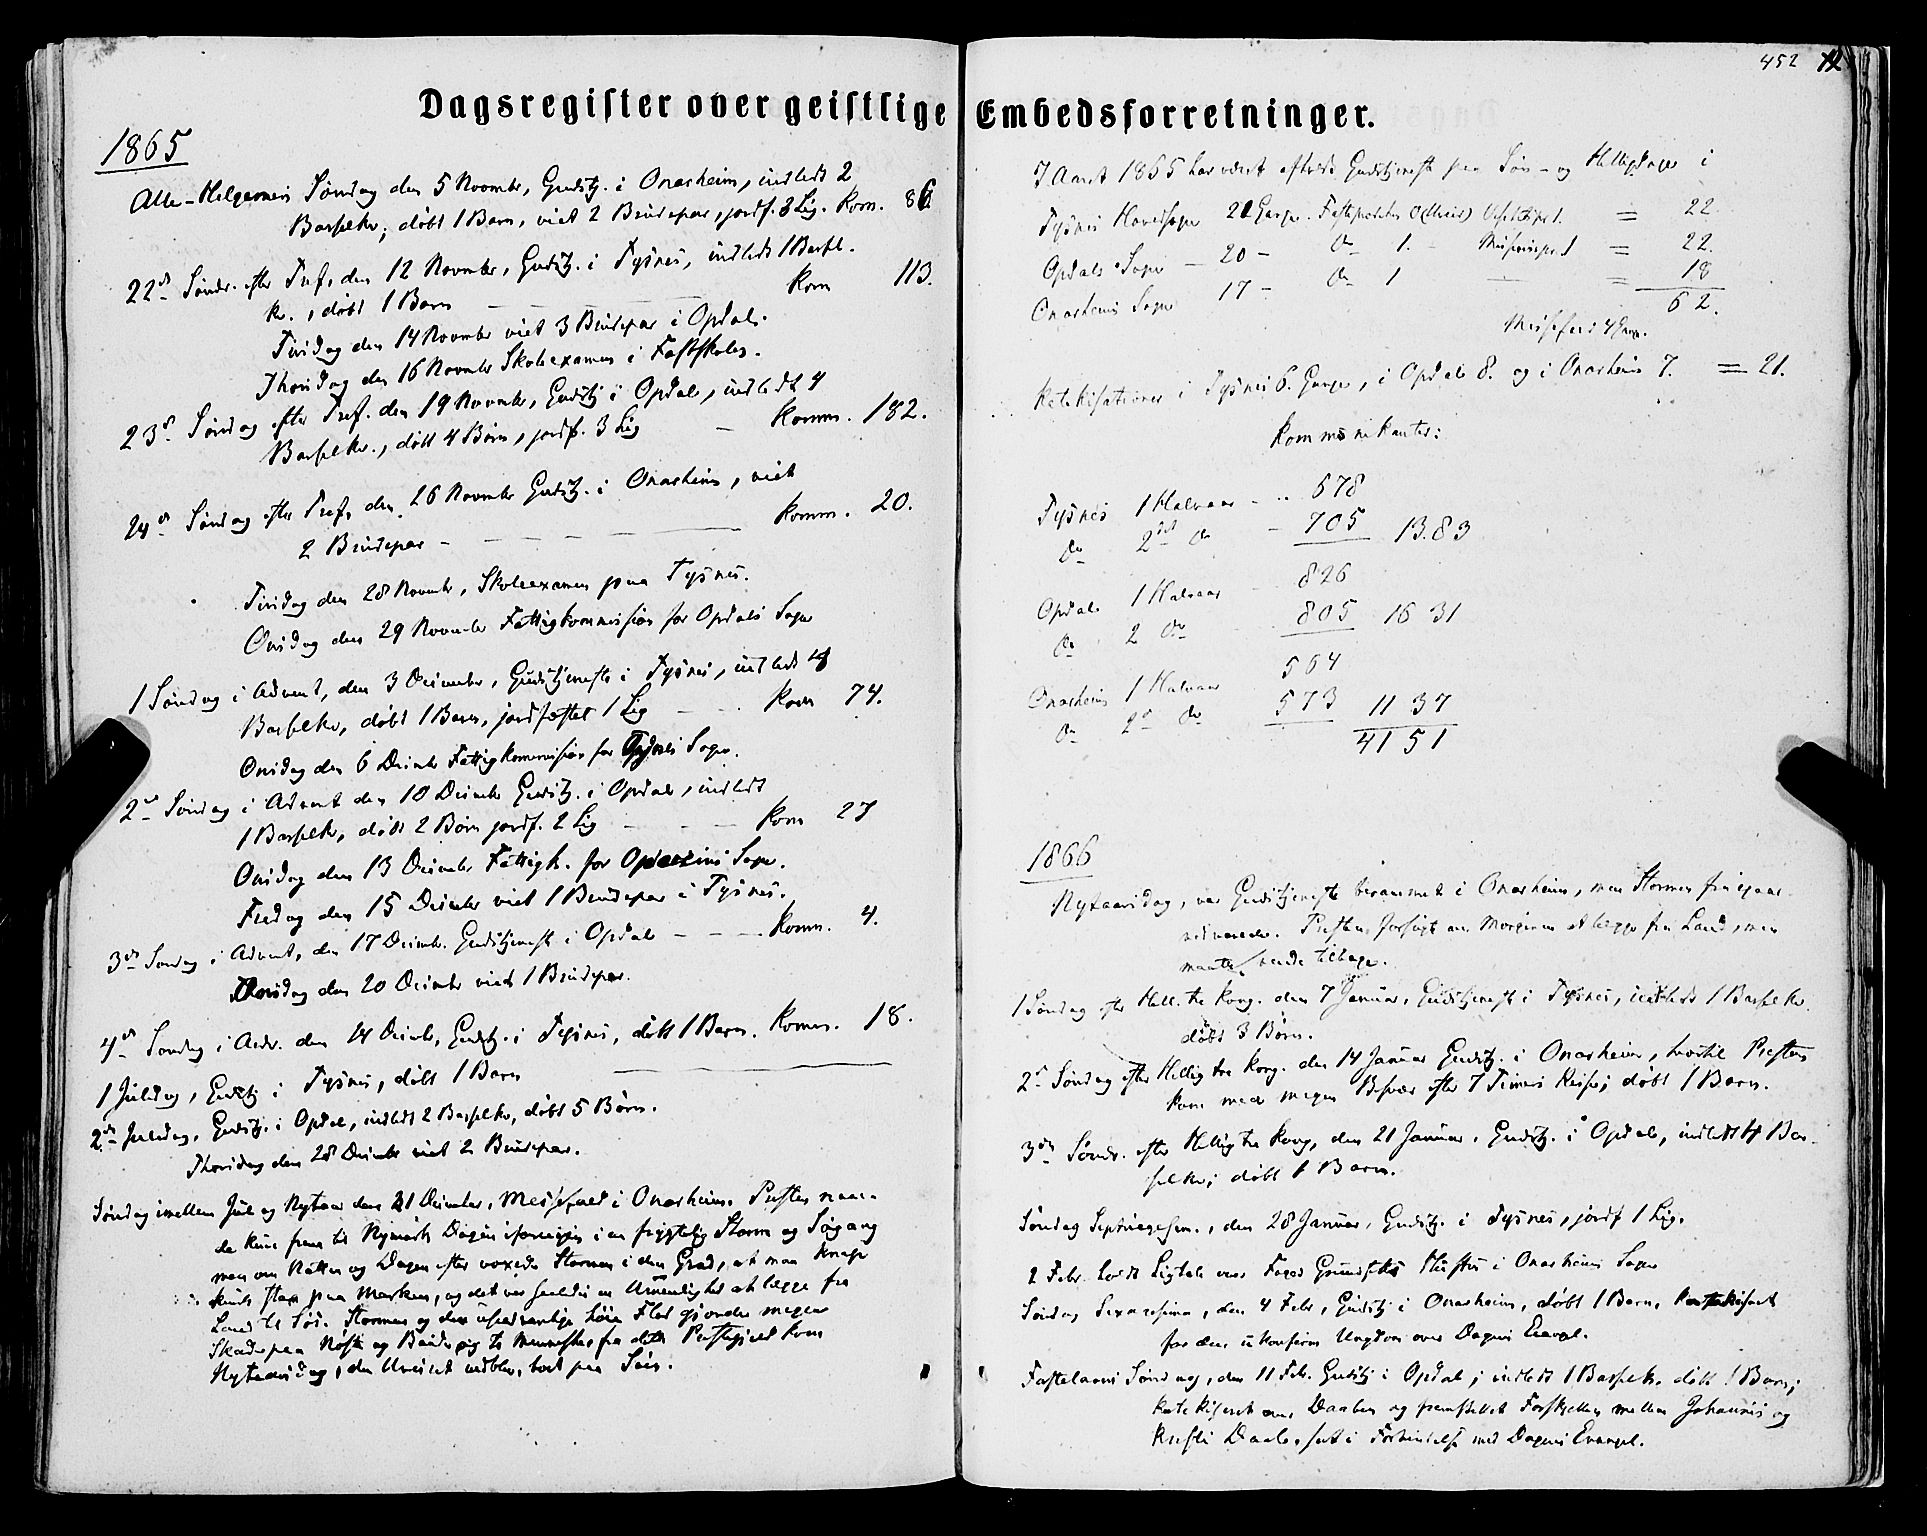 452
Dagsregister over geistlige Embedsforretninger.
1865
Alle-Helgenens Søndag den 5 Novembr, Gudstj. i Onarheim, indledt 2
Barselkv; døbt 1 Barn, viet 2 Brudepar, jordf. 3 Lig. Kom. 86
22d Sønd. efter Tref. den 12 Novembr, Gudstj. i Tysnes, indledt 1 Barsl.
kv., døbt 1 Barn — Kom 113.
Tirsdag den 14 Novembr viet 3 Brudepar i Opdal.
Thorsdag den 16 Novembr Skoleexamen i Fastskolen.
23d Søndag efter Tref. den 19 Novembr, Gudstj i Opdal, indledt 4
Barselkv., døbt 4 Børn, jordf. 3 Lig — Komm. 182.
24d Søndag efter Tref. den 26 Novembr Gudstj. i Onarheim, viet
2 Brudepar — Komm. 20.
Tirsdag den 28 Novembr, Skoleexamen paa Tysnes.
Onsdag den 29 November Fattigkommission for Opdals Sogn
1 Søndag i Advent, den 3 December, Gudstjeneste i Tysnes, indledt 4
Barselkv, døbt 1 Barn, jordfæstet 1 Lig — Kom 74.
Onsdag den 6 Decembr Fattigkommission for Tysnes Sogn.
2d Søndag i Advent den 10 Decembr Gudstj. i Opdal, indledt
1 Barselkv, døbt 2 Børn jordf. 2 Lig — Kom 27
Onsdag den 13 Decembr Fattigk. for Sogn.
Fredag den 15 Decembr viet 1 Brudepar i Tysnes.
3d Søndag i Advent, den 17 Decembr. Gudstjenest i Opdal — Komm. 4.
Thorsdag den 20 Decembr viet 1 Brudepar.
4d Søndag i Adv. den 24 Decembr, Gudstj. i Tysnes, døbt 1 Barn. Komm. 18.
1 Juledag, Gudstj i Tysnes, døbt 1 Barn
2d Juledag, Gudstj. i Opdal, indledt 2 Barselkv, døbt 5 Børn.
Thorsdag den 28 Decembr viet 2 Brudepar.
Søndag imellem Jul og Nytaar den 31 December, Messefald i Onarheim. Presten naae-
de kun frem til Dagen iforveien i en frygtelig Storm og Søgang
men om Natten og Dagen efter voxede Stormen i den Grad, at man knap
kunde staa paa Marken, og det var en Umulighed at lægge fra
Land til Søs. Stormen og den usædvanlige høie Flod gjorde megen
Skade paa Nøste og Baade og to Mennesker fra dette Prestegjeld kom
Nytaarsdag, da Uveiret vedblev, bort paa Søen.
I Aaret 1865 har været afholdt Gudstjenest paa Søn- og Helligdage i
Tysnes Hovedsogn 21 Gange. 1. = 22.
Opdals Sogn — 20 — do 1. — Missionspr. 1 = 22.
Onarheims Sogn 17 — do 1 — = 18
62.
Messefald 4 Gange.
Katekisationer i Tysnes 6. Gange, i Opdal 8. og i Onarheim 7. = 21.
Kommunikanter:
Tysnes 1 Halvaar — 678
do 2det do — 705 1383
Opdal 1 Halvaar 826
do 2 do 805 1631
Onarheim 1 Halvaar 564
do 2d do 573 1137
4151
1866
Nytaarsdag, var Gudstjeneste berammet i Onarheim, men Stormen fra igaar
vedvarede. Presten forsøgte om Morgenen at lægge fra Land, men
maatte vende tilbage.
1 Søndag efter Hell. tre Kong. den 7 Januar, Gudstjenest i Tysnes, indledt 1 Barselkv.
døbt 3 Børn.
2d Søndag efter Hellig tre Kong. den 14 Januar Gudstj. i Onarheim, hvortil Presten
kom med megen Besvær efter 7 Timers Reise; døbt 1 Barn.
3die Sønd. efter Hellig tre Kong, den 21 Januar, Gudstj. i Opdal, indledt 4 Bar-
selkv; døbt 1 Barn.
Søndag Septuagesim., den 28 Januar, Gudstj. i Tysnes, jordf 1 Lig.
2 Febr. holdt Ligtale over Foged Hustru i Onarheims Sogn
Søndag Sexagesima, den 4 Febr, Gudstj i Onarheim, døbt 1 Barn, katekiseret
for den ukonfirm Ungdom over Dagens Evangl.
Fastelavns Søndag, den 11 Febr. Gudstj i Opdal; indledt 1 Barselkv. døbt 1 Barn;
katekiseret om Daaben og fremstillet Forskjellen mellem Johannis og
Kristi Daab, sat i Forbindelse med Dagens Evangel.